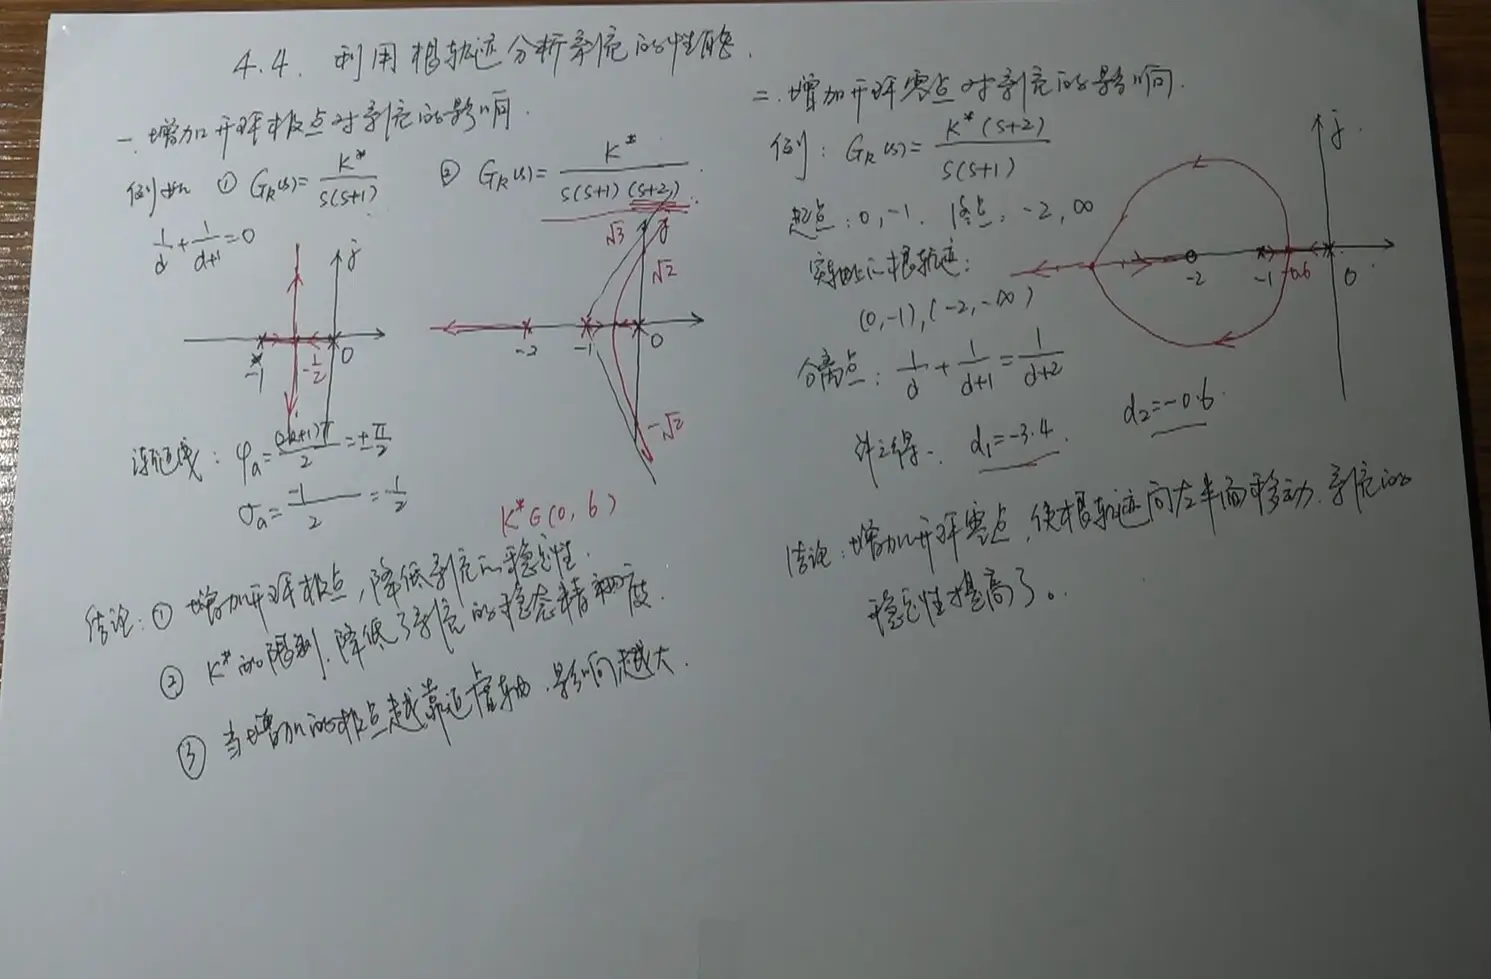 4.4. 利用根轨迹分析系统的性能.
一. 增加开环极点对系统的影响.
例如 ① G_K(s)= K*/(s(s+1))
② G_K(s)= K*/(s(s+1)(s+2)).
1/d + 1/(d+1) = 0
j
-1 -1/2 0
√3 j
√2
-2 -1 0
-√2
渐近线: φa= (2k+1)π/2 = ±π/2
σa= -1/2 = -1/2
K*∈(0, 6)
结论: ① 增加开环极点, 降低系统的稳定性.
② K*的限制. 降低了系统的稳态精度.
③ 当增加的极点越靠近虚轴. 影响越大.
二. 增加开环零点对系统的影响.
例: G_K(s)= K*(s+2)/(s(s+1))
起点: 0, -1. 终点: -2, ∞
实轴上的根轨迹:
(0,-1), (-2,-∞)
j
-2 -1 -0.6 0
分离点: 1/d + 1/(d+1) = 1/(d+2)
解之得. d₁=-3.4. d₂=-0.6.
结论: 增加开环零点, 使根轨迹向左半面移动. 系统的
稳定性提高了。